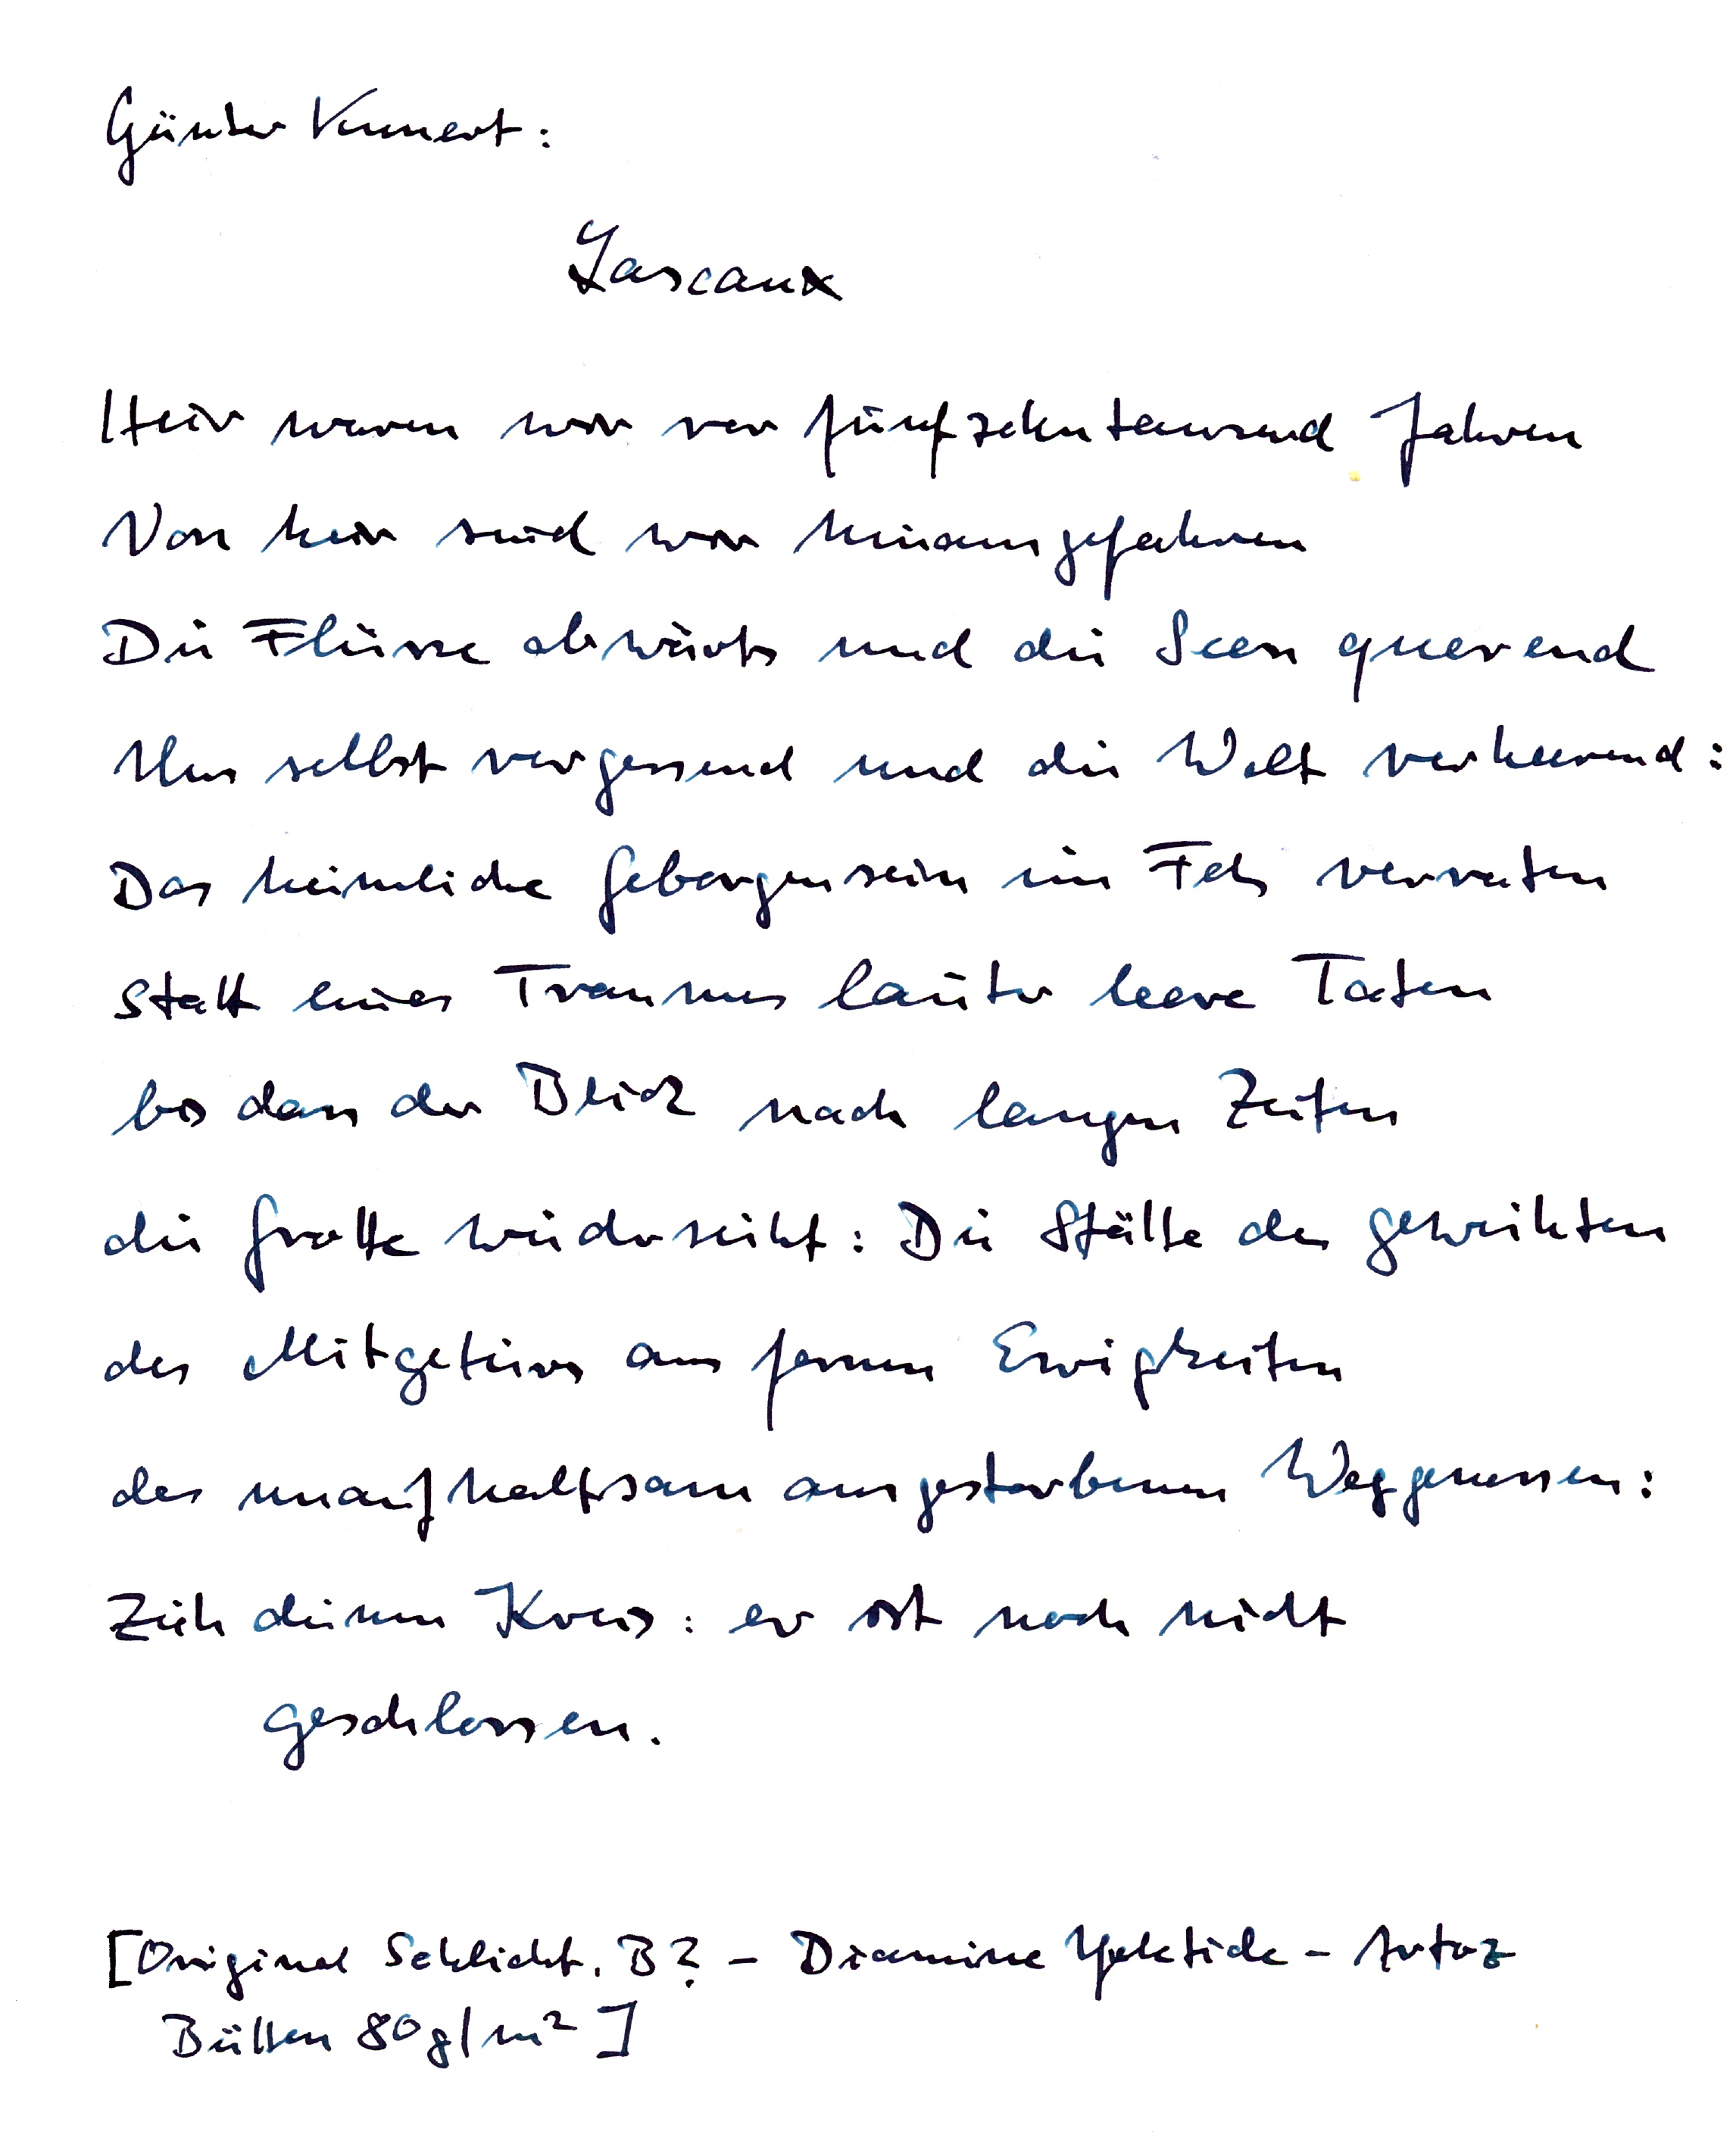 Günter Kunert:
Lascaux
Hier waren wir vor fünfzehntausend Jahren
Von hier sind wir hinausgefahren
Die Flüsse abwärts und die Seen querend
Uns selbst vergessend und die Welt verheerend:
Das heimliche Geborgensein im Fels verraten
statt eines Traumes lauter leere Taten
bis dass der Blick nach langen Zeiten
die Grotte wiedersieht: Die Stätte des geweihten
des Mitgetiers aus fernen Ewigkeiten
des unaufhaltsam ausgestorbenen Weggenossen:
Zieh deinen Kreis: er ist noch nicht
geschlossen.
[Original Schlicht. B? – Diamine Yuletide – Artoz
Bütten 80g/m²]